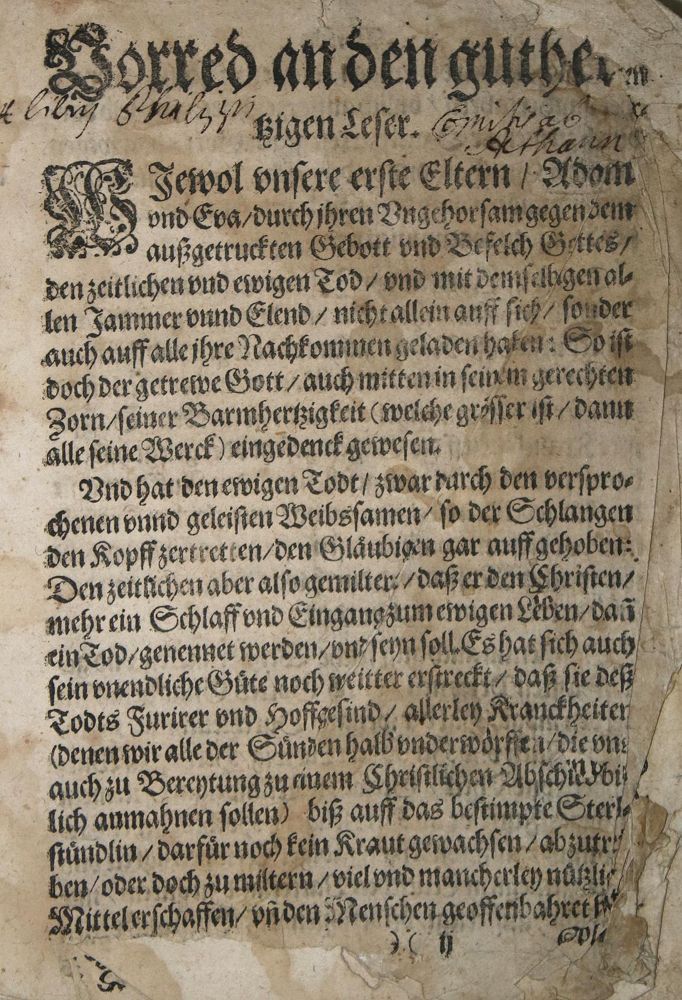 Vorred an den guther-
tzigen Leser.
WJewol vnsere erste Eltern / Adam
vnd Eva / durch jhren Vngehorsam gegen dem
außgetruckten Gebott vnd Befelch Gottes /
den zeitlichen vnd ewigen Tod / vnd mit demselbigen al-
len Jammer vnnd Elend / nicht allein auff sich / sonder
auch auff alle jhre Nachkommen geladen haben: So ist
doch der getrewe Gott / auch mitten in seinem gerechten
Zorn / seiner Barmhertzigkeit (welche grösser ist / dann
alle seine Werck) eingedenck gewesen.
Vnd hat den ewigen Todt / zwar durch den verspro-
chenen vnnd geleisten Weibssamen / so der Schlangen
den Kopff zertretten / den Gläubigen gar auffgehoben:
Den zeitlichen aber also gemiltert / daß er den Christen /
mehr ein Schlaff vnd Eingang zum ewigen Leben / dañ
ein Tod / genennet werden / vnd seyn soll. Es hat sich auch
sein vnendliche Güte noch weitter erstreckt / daß sie deß
Todts Furirer vnd Hoffgesind / allerley Kranckheiten
(denen wir alle der Sünden halb vnderworffen / die vns
auch zu Bereytung zu einem Christlichen Abschid bil-
lich anmahnen sollen) biß auff das bestimpte Sterb-
stündlin / darfür noch kein Kraut gewachsen / abzutrei-
ben / oder doch zu miltern / viel vnd mancherley nützliche
Mittel erschaffen / vñ den Menschen geoffenbahret
)( ij